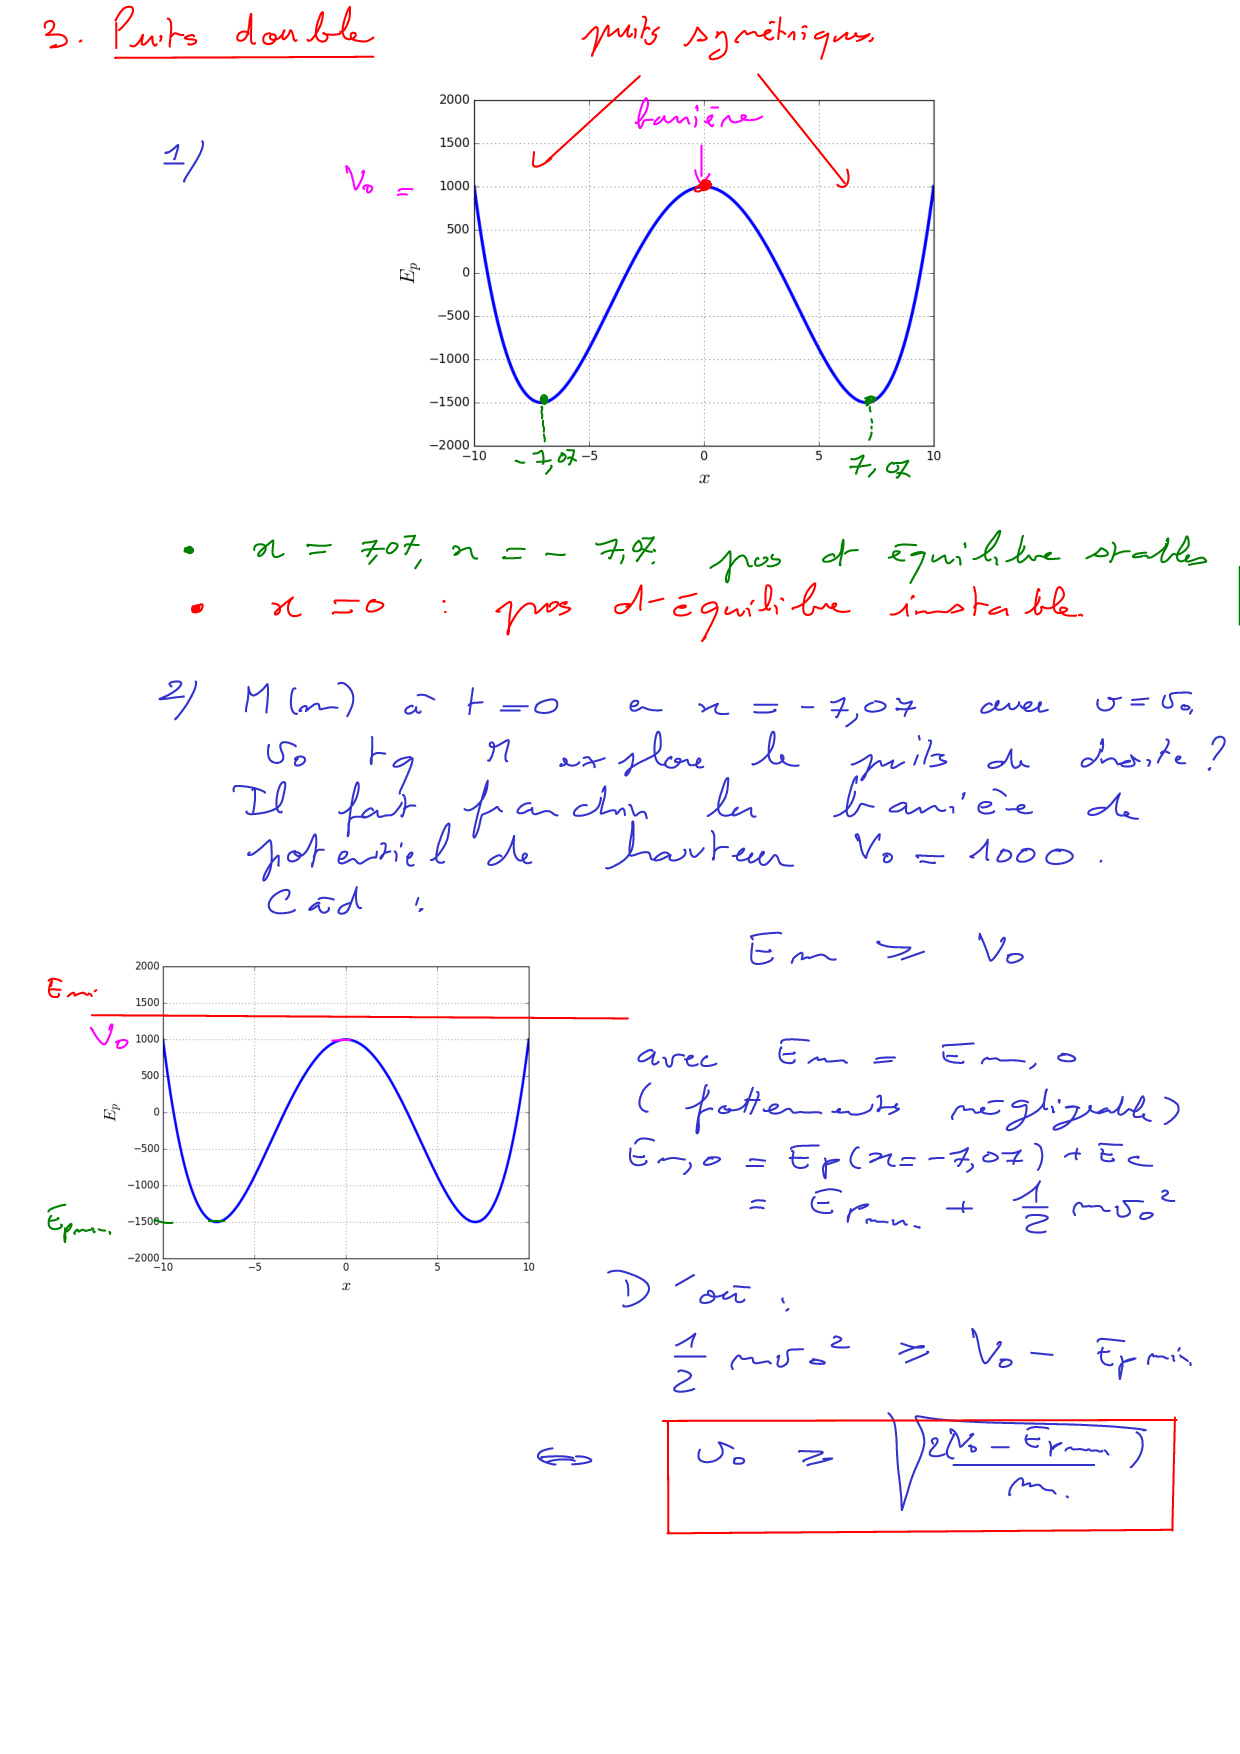 3. Puits double
puits symétriques.
1)
barrière
V₀ =
2000
1500
1000
500
0
−500
−1000
−1500
−2000
E_p
−10 −5 0 5 10
-7,07 7,07
x
• x = 7,07, x = - 7,07: pos d'équilibre stables
• x = 0 : pos d'équilibre instable.
2) M(m) à t = 0 en x = - 7,07 avec v = v₀,
v₀ tq M explore le puits de droite ?
Il faut franchir la barrière de
potentiel de hauteur V₀ = 1000.
Càd :
Em ⩾ V₀
2000
1500
1000
500
0
−500
−1000
−1500
−2000
E_p
−10 −5 0 5 10
x
Em
V₀
Epmin.
avec Em = Em,0
(frottements négligeable)
Em,0 = Ep(x=-7,07) + Ec
= Epmin. + 1/2 mv₀²
D'où :
1/2 mv₀² ⩾ V₀ - Epmin.
⇔ v₀ ⩾ √(2(V₀ - Epmin)/m.)